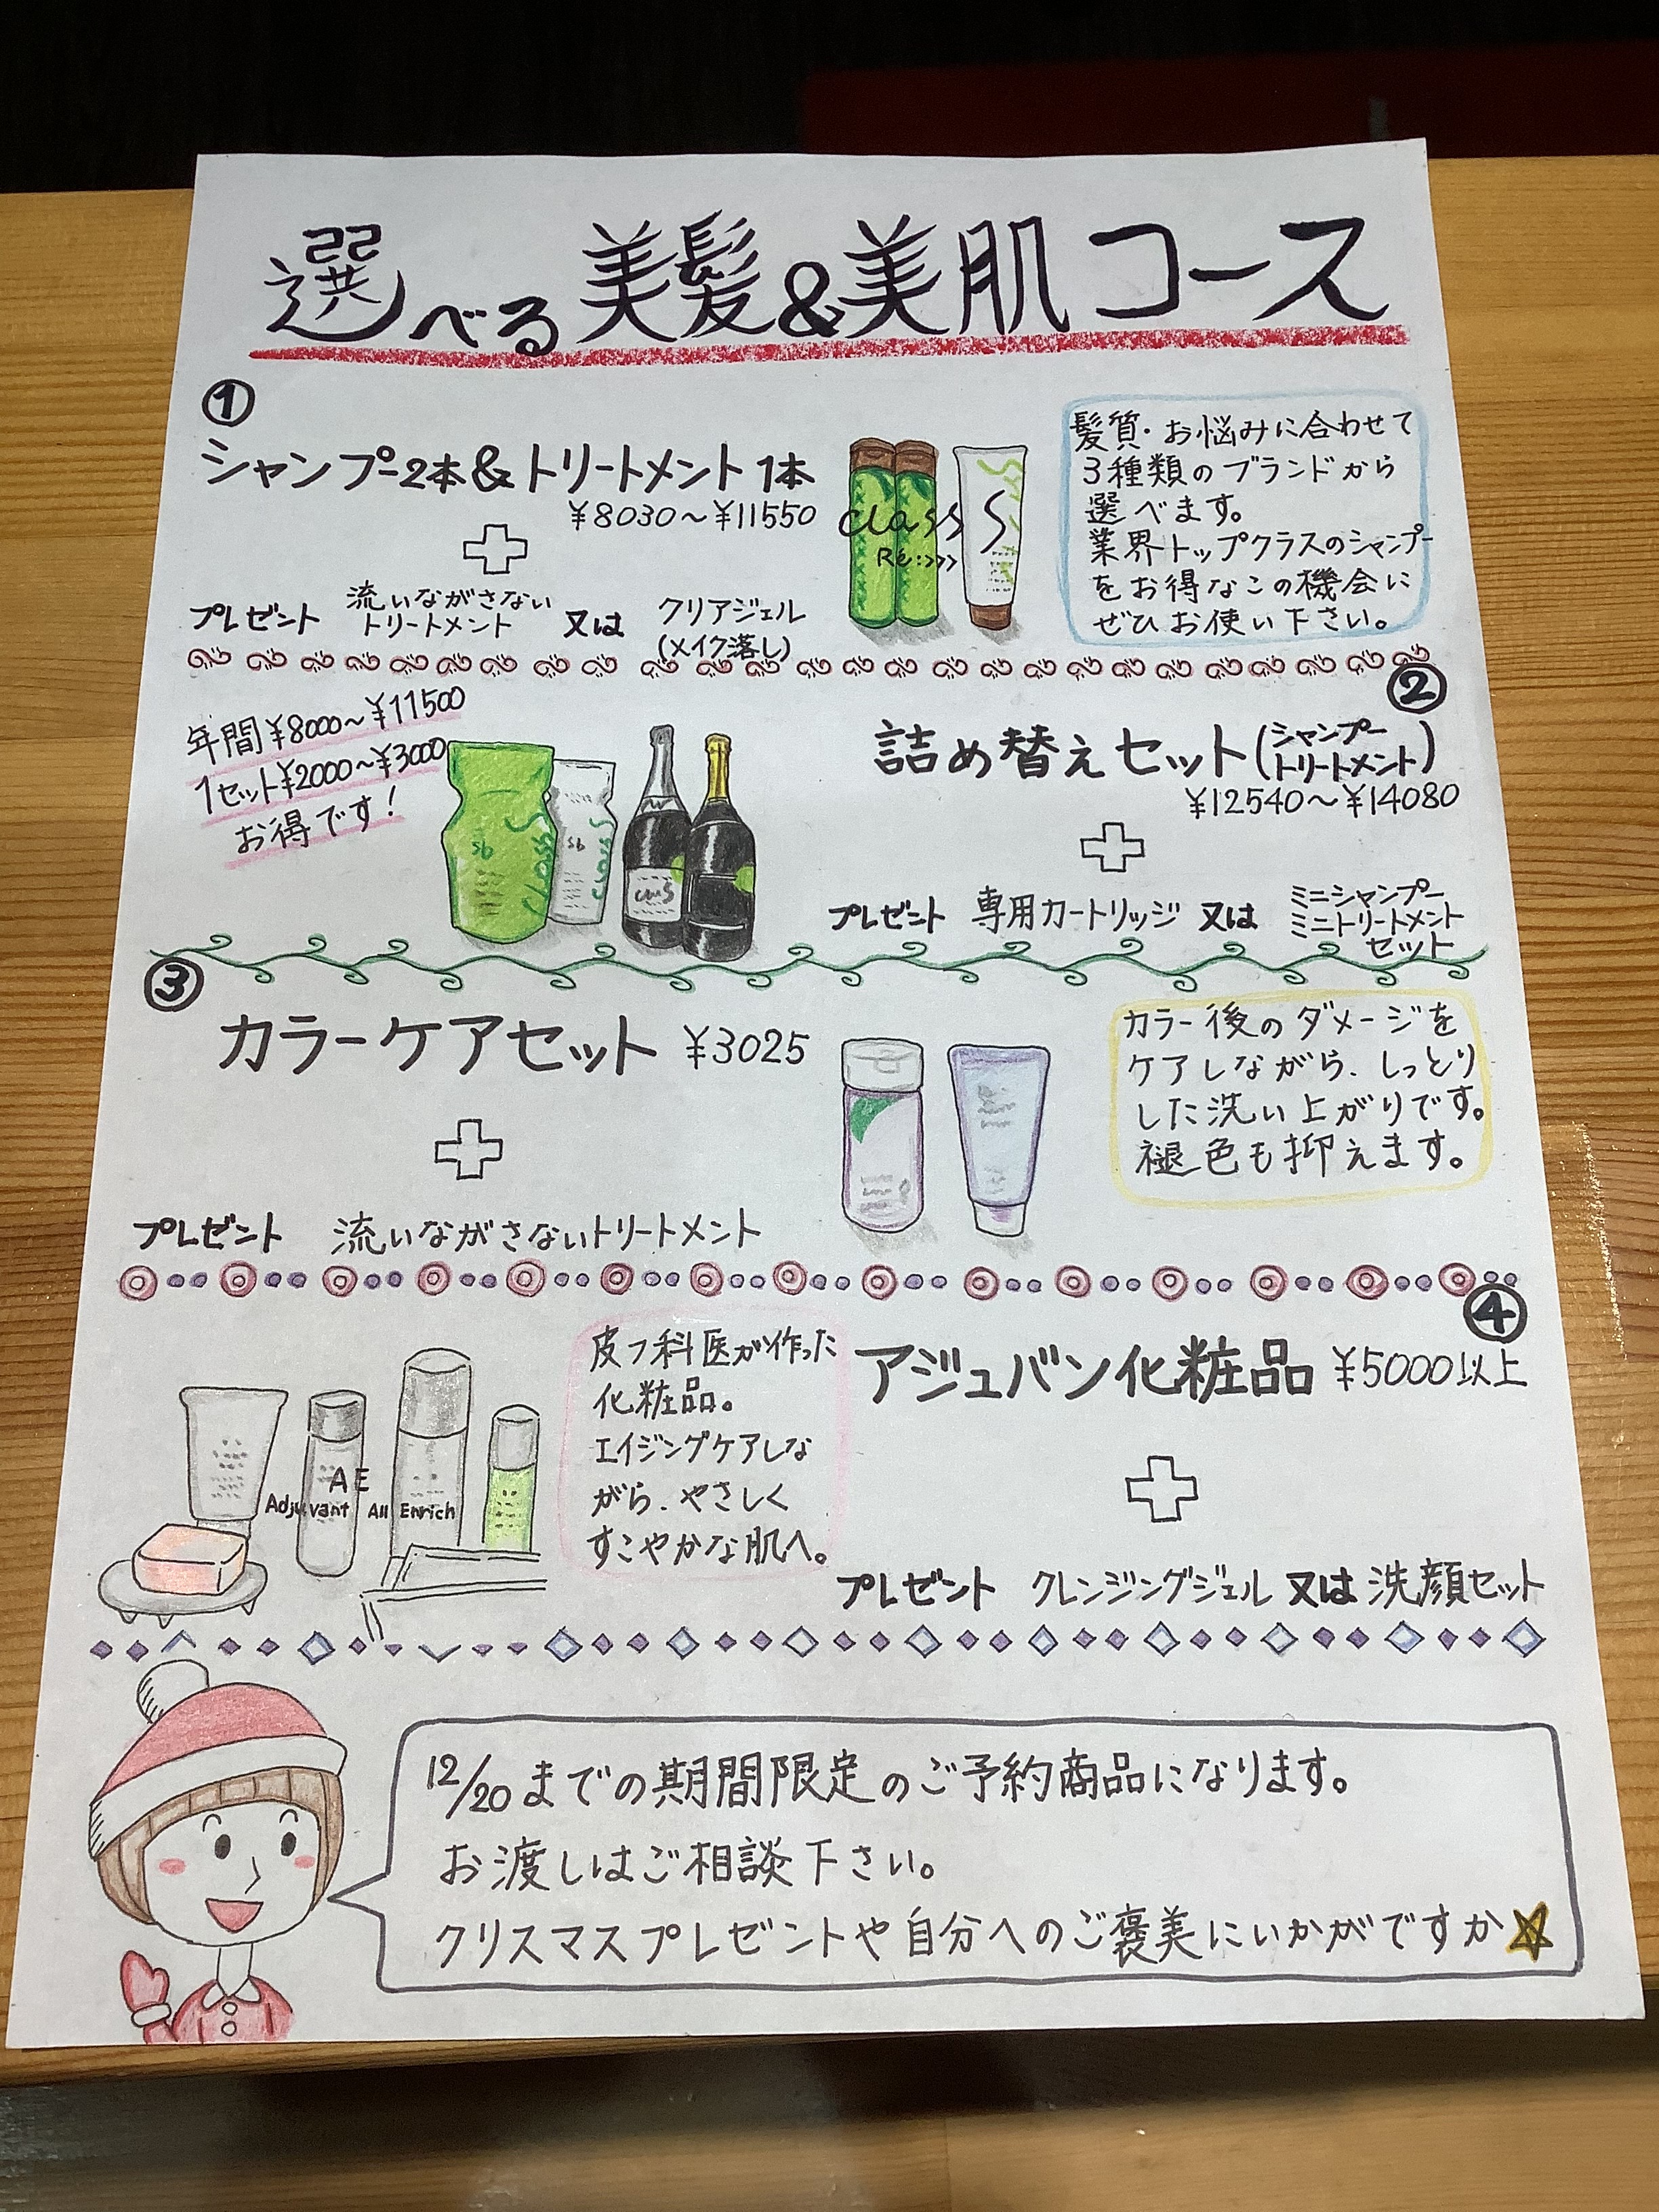 選べる美髪&美肌コース
①
シャンプー2本&トリートメント1本
¥8030～¥11550
プレゼント 流いながさない
トリートメント 又は クリアジェル
(メイク落し)
class S
Ré:>>>
髪質・お悩みに合わせて
3種類のブランドから
選べます。
業界トップクラスのシャンプー
をお得なこの機会に
ぜひお使い下さい。
②
年間¥8000～¥11500
1セット¥2000～¥3000
お得です!
sb
Class S
sb
Class
詰め替えセット(シャンプー
トリートメント)
¥12540～¥14080
プレゼント 専用カートリッジ 又は ミニシャンプー
ミニトリートメント
セット
③
カラーケアセット ¥3025
プレゼント 流いながさないトリートメント
カラー後のダメージを
ケアしながら、しっとり
した洗い上がりです。
褪色も抑えます。
④
AE
Adjuvant All Enrich
皮フ科医が作った
化粧品。
エイジングケアしな
がら、やさしく
すこやかな肌へ。
アジュバン化粧品 ¥5000以上
プレゼント クレンジングジェル 又は 洗顔セット
12/20までの期間限定のご予約商品になります。
お渡しはご相談下さい。
クリスマスプレゼントや自分へのご褒美にいかがですか☆